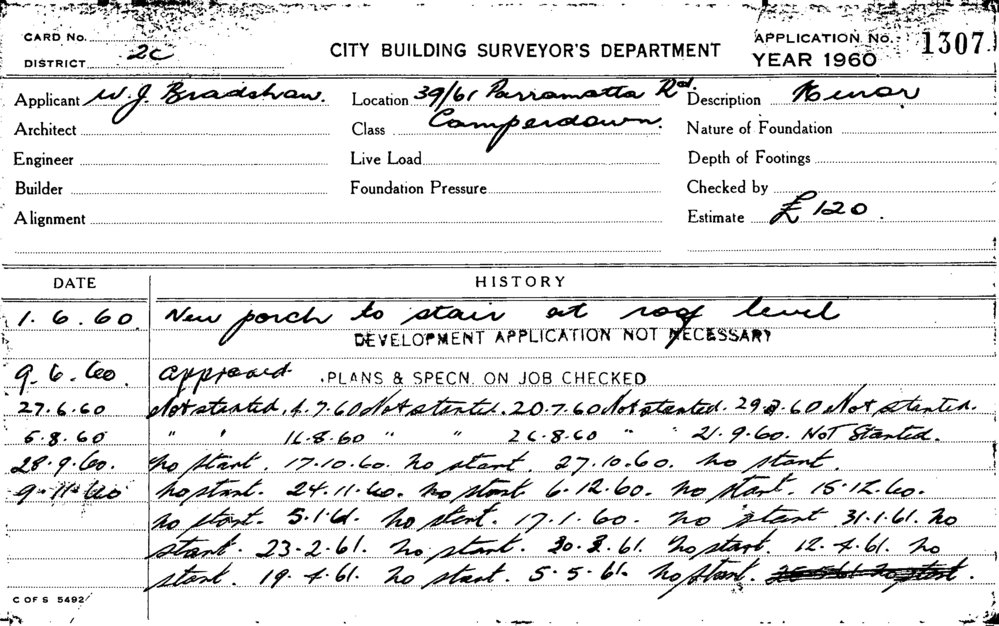 CARD No. 2C
DISTRICT
CITY BUILDING SURVEYOR'S DEPARTMENT
APPLICATION No. 1307
YEAR 1960
Applicant W. J. Bradshaw. Location 39/61 Parramatta Rd. Description Minor
Architect Class Camperdown. Nature of Foundation
Engineer Live Load Depth of Footings
Builder Foundation Pressure Checked by
Alignment Estimate £ 120.
DATE HISTORY
1.6.60 New porch to stair at roof level
DEVELOPMENT APPLICATION NOT NECESSARY
9.6.60. approved PLANS & SPECN. ON JOB CHECKED
27.6.60 Not started. 4.7.60 Not started. 20.7.60 Not started. 29.7.60 Not started.
5.8.60 " " 16.8.60 " " 26.8.60 " " 21.9.60. Not Started.
28.9.60. no start. 17.10.60. no start. 27.10.60. no start.
9.11.60 no start. 24.11.60. no start 6.12.60. no start. 15.12.60.
no start. 5.1.61. no start. 17.1.60. no start 31.1.61. no
start. 23.2.61. no start. 20.3.61. no start. 12.4.61. no
start. 19.4.61. no start. 5.5.61. no start.
C OF S 5492